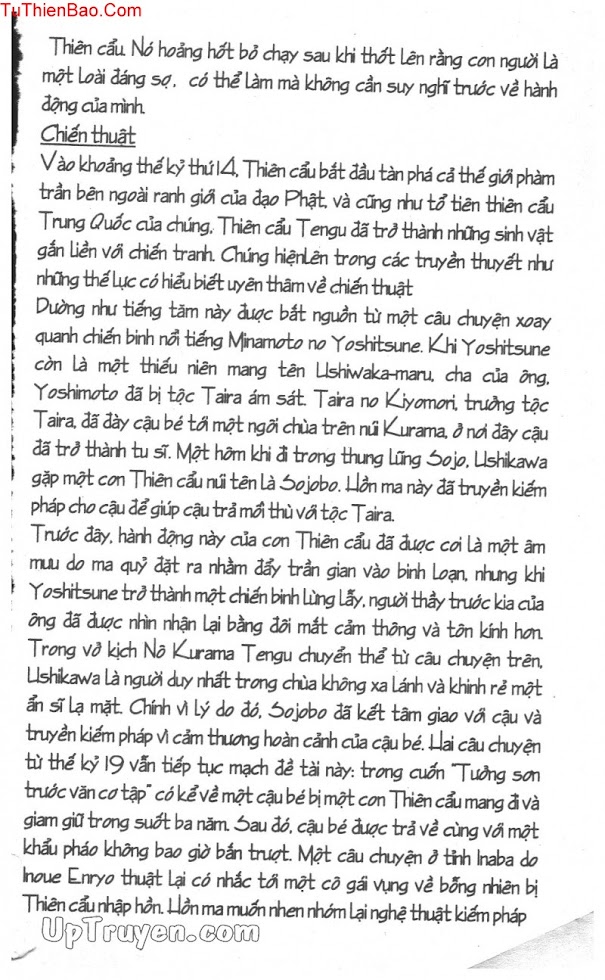 TuThienBao.Com
Thiên cẩu. Nó hoảng hốt bỏ chạy sau khi thốt lên rằng con người là
một loài đáng sợ, có thể làm mà không cần suy nghĩ trước về hành
động của mình.
Chiến thuật
Vào khoảng thế kỷ thứ 14, Thiên cẩu bắt đầu tàn phá cả thế giới phàm
trần bên ngoài ranh giới của đạo Phật, và cũng như tổ tiên thiên cẩu
Trung Quốc của chúng, Thiên cẩu Tengu đã trở thành những sinh vật
gắn liền với chiến tranh. Chúng hiệnLên trong các truyền thuyết như
những thế lực có hiểu biết uyên thâm về chiến thuật
Dường như tiếng tăm này được bắt nguồn từ một câu chuyện xoay
quanh chiến binh nổi tiếng Minamoto no Yoshitsune. Khi Yoshitsune
còn là một thiếu niên mang tên Ushiwaka-maru, cha của ông,
Yoshimoto đã bị tộc Taira ám sát. Taira no Kiyomori, trưởng tộc
Taira, đã đày cậu bé tới một ngôi chùa trên núi Kurama, ở nơi đây cậu
đã trở thành tu sĩ. Một hôm khi đi trong thung lũng Sojo, Ushikawa
gặp một con Thiên cẩu núi tên là Sojobo. Hồn ma này đã truyền kiếm
pháp cho cậu để giúp cậu trả mối thù với tộc Taira.
Trước đây, hành động này của con Thiên cẩu đã được coi là một âm
mưu do ma quỷ đặt ra nhằm đẩy trần gian vào binh Loạn, nhưng khi
Yoshitsune trở thành một chiến binh lừng lẫy, người thầy trước kia của
ông đã được nhìn nhận lại bằng đôi mắt cảm thông và tôn kính hơn.
Trong vở kịch Nô Kurama Tengu chuyển thể từ câu chuyện trên,
Ushikawa là người duy nhất trong chùa không xa lánh và khinh rẻ một
ẩn sĩ lạ mặt. Chính vì lý do đó, Sojobo đã kết tâm giao với cậu và
truyền kiếm pháp vì cảm thương hoàn cảnh của cậu bé. Hai câu chuyện
từ thế kỷ 19 vẫn tiếp tục mạch đề tài này: trong cuốn "Tưởng sơn
trước văn cơ tập" có kể về một cậu bé bị một con Thiên cẩu mang đi và
giam giữ trong suốt ba năm. Sau đó, cậu bé được trả về cùng với một
khẩu pháo không bao giờ bắn trượt. Một câu chuyện ở tỉnh Inaba do
Inoue Enryo thuật lại có nhắc tới một cô gái vụng về bỗng nhiên bị
Thiên cẩu nhập hồn. Hồn ma muốn nhen nhóm lại nghệ thuật kiếm pháp
UpTruyen.com